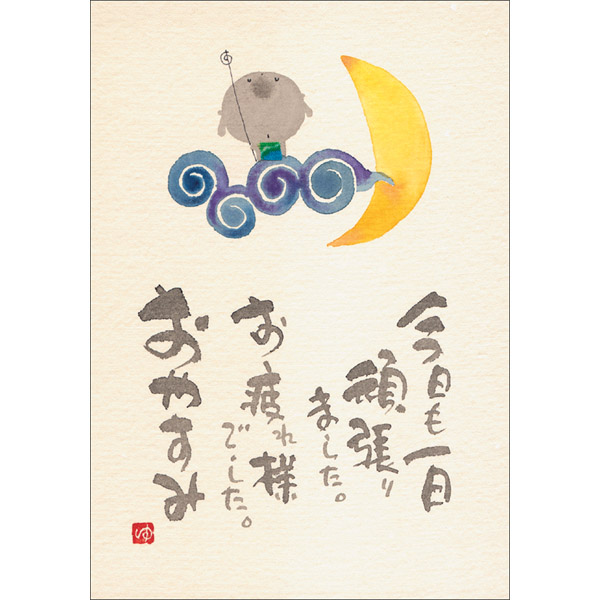 今日も一日
頑張り
ました。
お疲れ様
でした。
おやすみ
ゆ